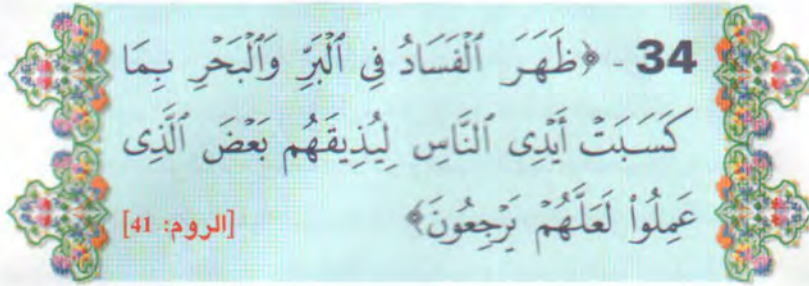 34 - ﴿ظَهَرَ ٱلْفَسَادُ فِى ٱلْبَرِّ وَٱلْبَحْرِ بِمَا
كَسَبَتْ أَيْدِى ٱلنَّاسِ لِيُذِيقَهُم بَعْضَ ٱلَّذِى
عَمِلُوا۟ لَعَلَّهُمْ يَرْجِعُونَ﴾ [الروم: 41]